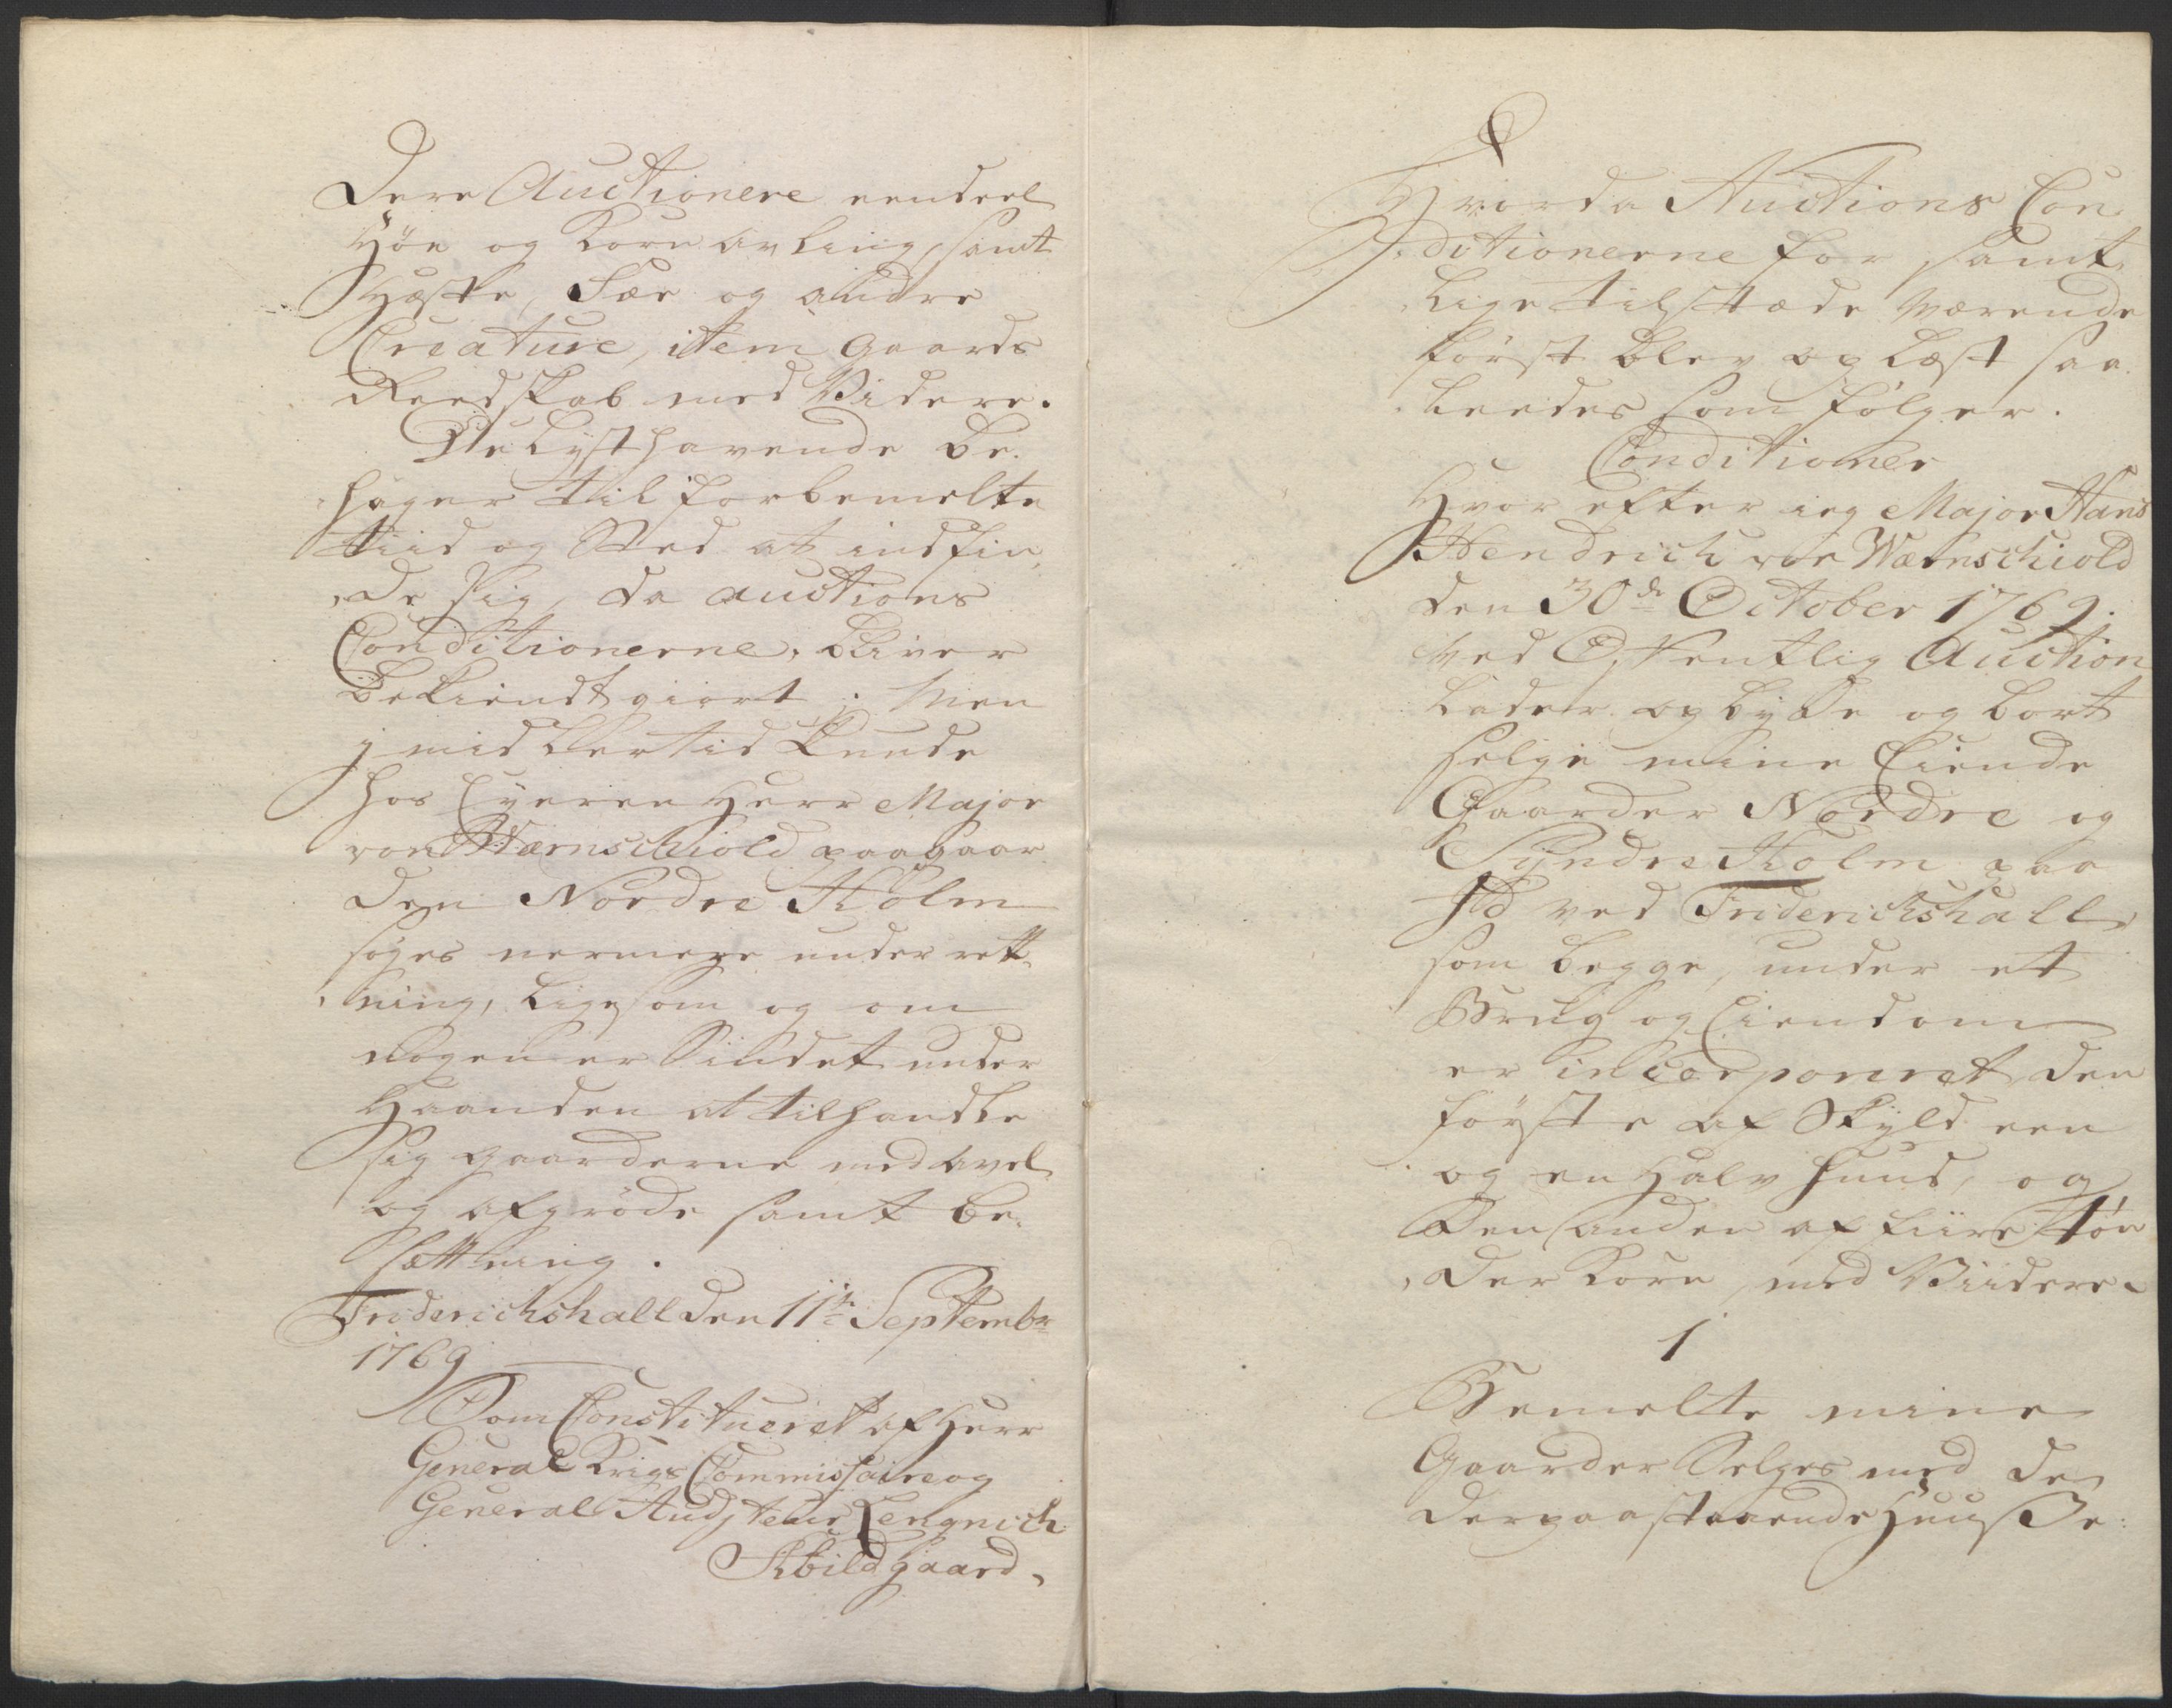 dere Auctionere eendeel
Höe og Korn avling, samt
Hæste, Fæe og andre
Creature, item Gaards
Reedskab med Videre.
De Lysthavende be„
„hager til forbemelte
tiid og Sted at indfin„
„de sig, da auctions
Conditionerne, bliver
bekiendtgiort; Men
jmidlertid kunde
hos Eyeren Herr Major
von Wærnschiold paa gaar
den Nordre Holm
søges nermere underrett„
„ning, ligesom og om
nogen er Sindet under
Haanden at tilhandle
sig gaarderne med avel
og afgrøde samt be„
sættning.
Friderichshall den 11te Septembr
1769
Som Constitueret af Herr
General Krigs Commissaire og
General Auditeur Lengnich
Abildgaard.
Hvorda Auctions Con„
„ditionerne for samt„
„lige tilstæde Værende
først blev oplæst saa„
„leedes som følger.
Conditioner
Hvorefter ieg Major Hans
Hendrich von Wærnschiold
den 30de October 1769.
ved Offentlig Auction
lader opbyde og bort
selge mine Eiende
Gaarder Nordre og
Syndre Holm paa
Id ved Friderichshall
som begge, under et
Brug og Eiendom
er incorporeret den
første af Skyld een
og en halv huud, og
den anden af fiire Tøn
„der Korn, med Viidere.
1
Bemelte mine
Gaarder Selges med de
derpaastaaende Huuse